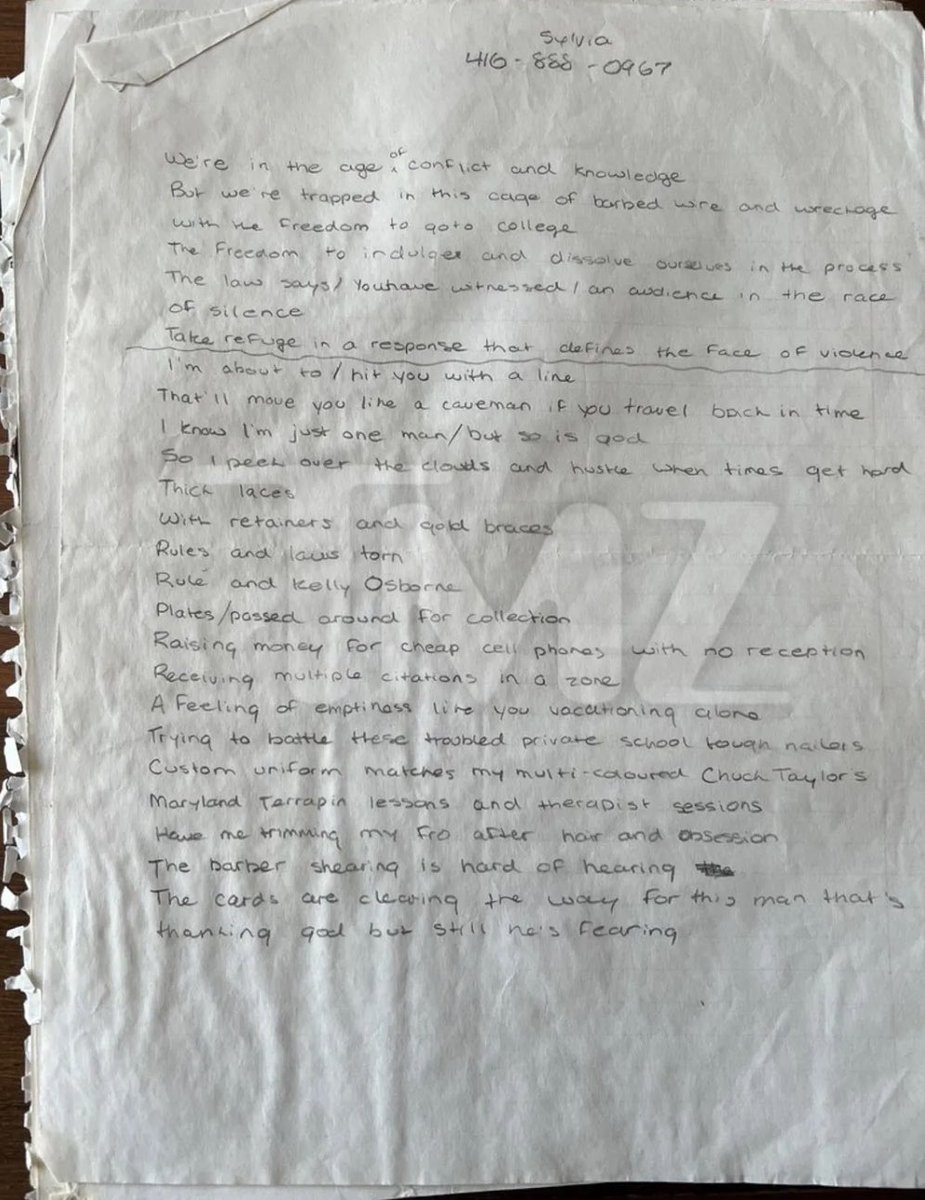 Sylvia
416-888-0967
We're in the age of conflict and knowledge
But we're trapped in this cage of barbed wire and wreckage
With the Freedom to goto college
The Freedom to indulge and dissolve ourselves in the process
The law says/ You have witnessed/ an audience in the race
of silence
Take refuge in a response that defines the Face of violence
I'm about to/ hit you with a line
That'll move you like a caveman if you travel back in time
I know I'm just one man/but so is god
So I peek over the clouds and hustle when times get hard
Thick laces
With retainers and gold braces
Rules and laws torn
Rule and Kelly Osborne
Plates/passed around for collection
Raising money for cheap cell phones with no reception
Receiving multiple citations in a zone
A Feeling of emptiness like you vacationing alone
Trying to battle these troubled private school tough nailers
Custom uniform matches my multi-coloured Chuck Taylor's
Maryland Terrapin lessons and therapist sessions
Have me trimming my Fro after hair and obsession
The barber shearing is hard of hearing
The cards are clearing the way for this man that's
thanking god but still he's Fearing
TMZ